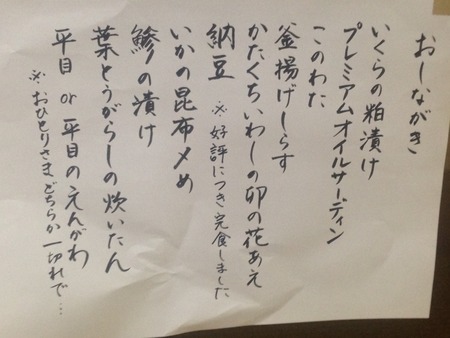 おしながき
いくらの粕漬け
プレミアムオイルサーディン
このわた
釜揚げしらす
かたくちいわしの卯の花あえ
納豆 ※好評につき完食しました
いかの昆布〆め
鯵の漬け
葉とうがらしの炊いたん
平目 or 平目のえんがわ
※おひとりさま、どちらか一切れで…